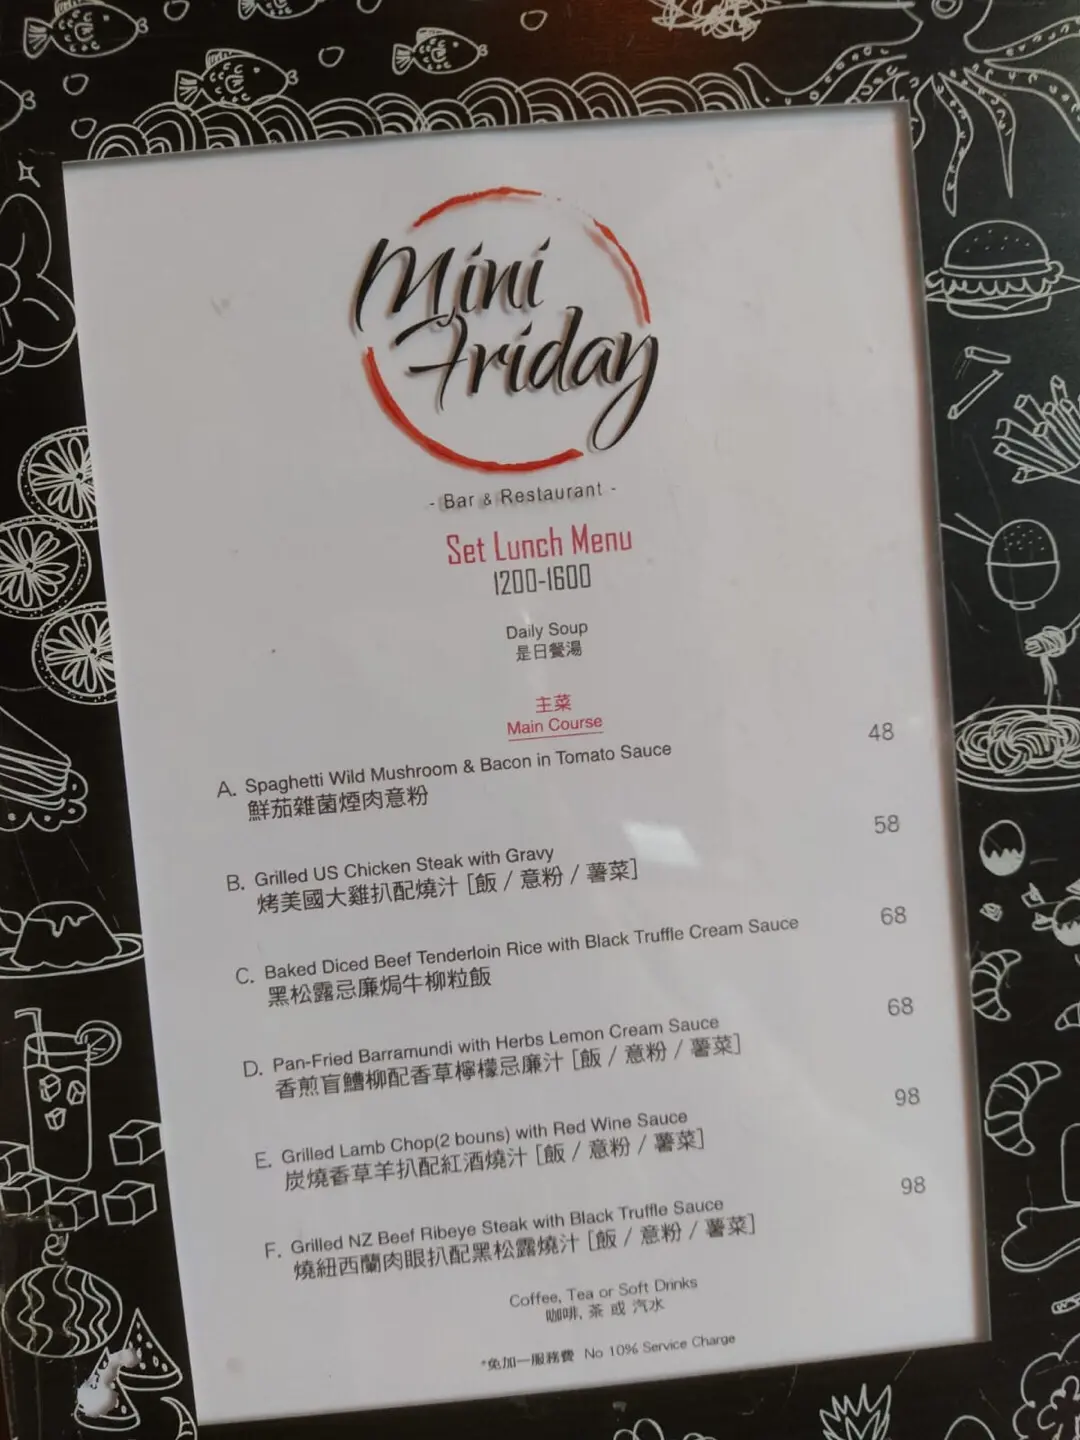 Mini
Friday
- Bar & Restaurant -
Set Lunch Menu
1200-1600
Daily Soup
是日餐湯
主菜
Main Course
A. Spaghetti Wild Mushroom & Bacon in Tomato Sauce 48
鮮茄雜菌煙肉意粉
B. Grilled US Chicken Steak with Gravy 58
烤美國大雞扒配燒汁 [飯 / 意粉 / 薯菜]
C. Baked Diced Beef Tenderloin Rice with Black Truffle Cream Sauce 68
黑松露忌廉焗牛柳粒飯
D. Pan-Fried Barramundi with Herbs Lemon Cream Sauce 68
香煎盲鰽柳配香草檸檬忌廉汁 [飯 / 意粉 / 薯菜]
E. Grilled Lamb Chop(2 bouns) with Red Wine Sauce 98
炭燒香草羊扒配紅酒燒汁 [飯 / 意粉 / 薯菜]
F. Grilled NZ Beef Ribeye Steak with Black Truffle Sauce 98
燒紐西蘭肉眼扒配黑松露燒汁 [飯 / 意粉 / 薯菜]
Coffee, Tea or Soft Drinks
咖啡, 茶 或 汽水
*免加一服務費 No 10% Service Charge